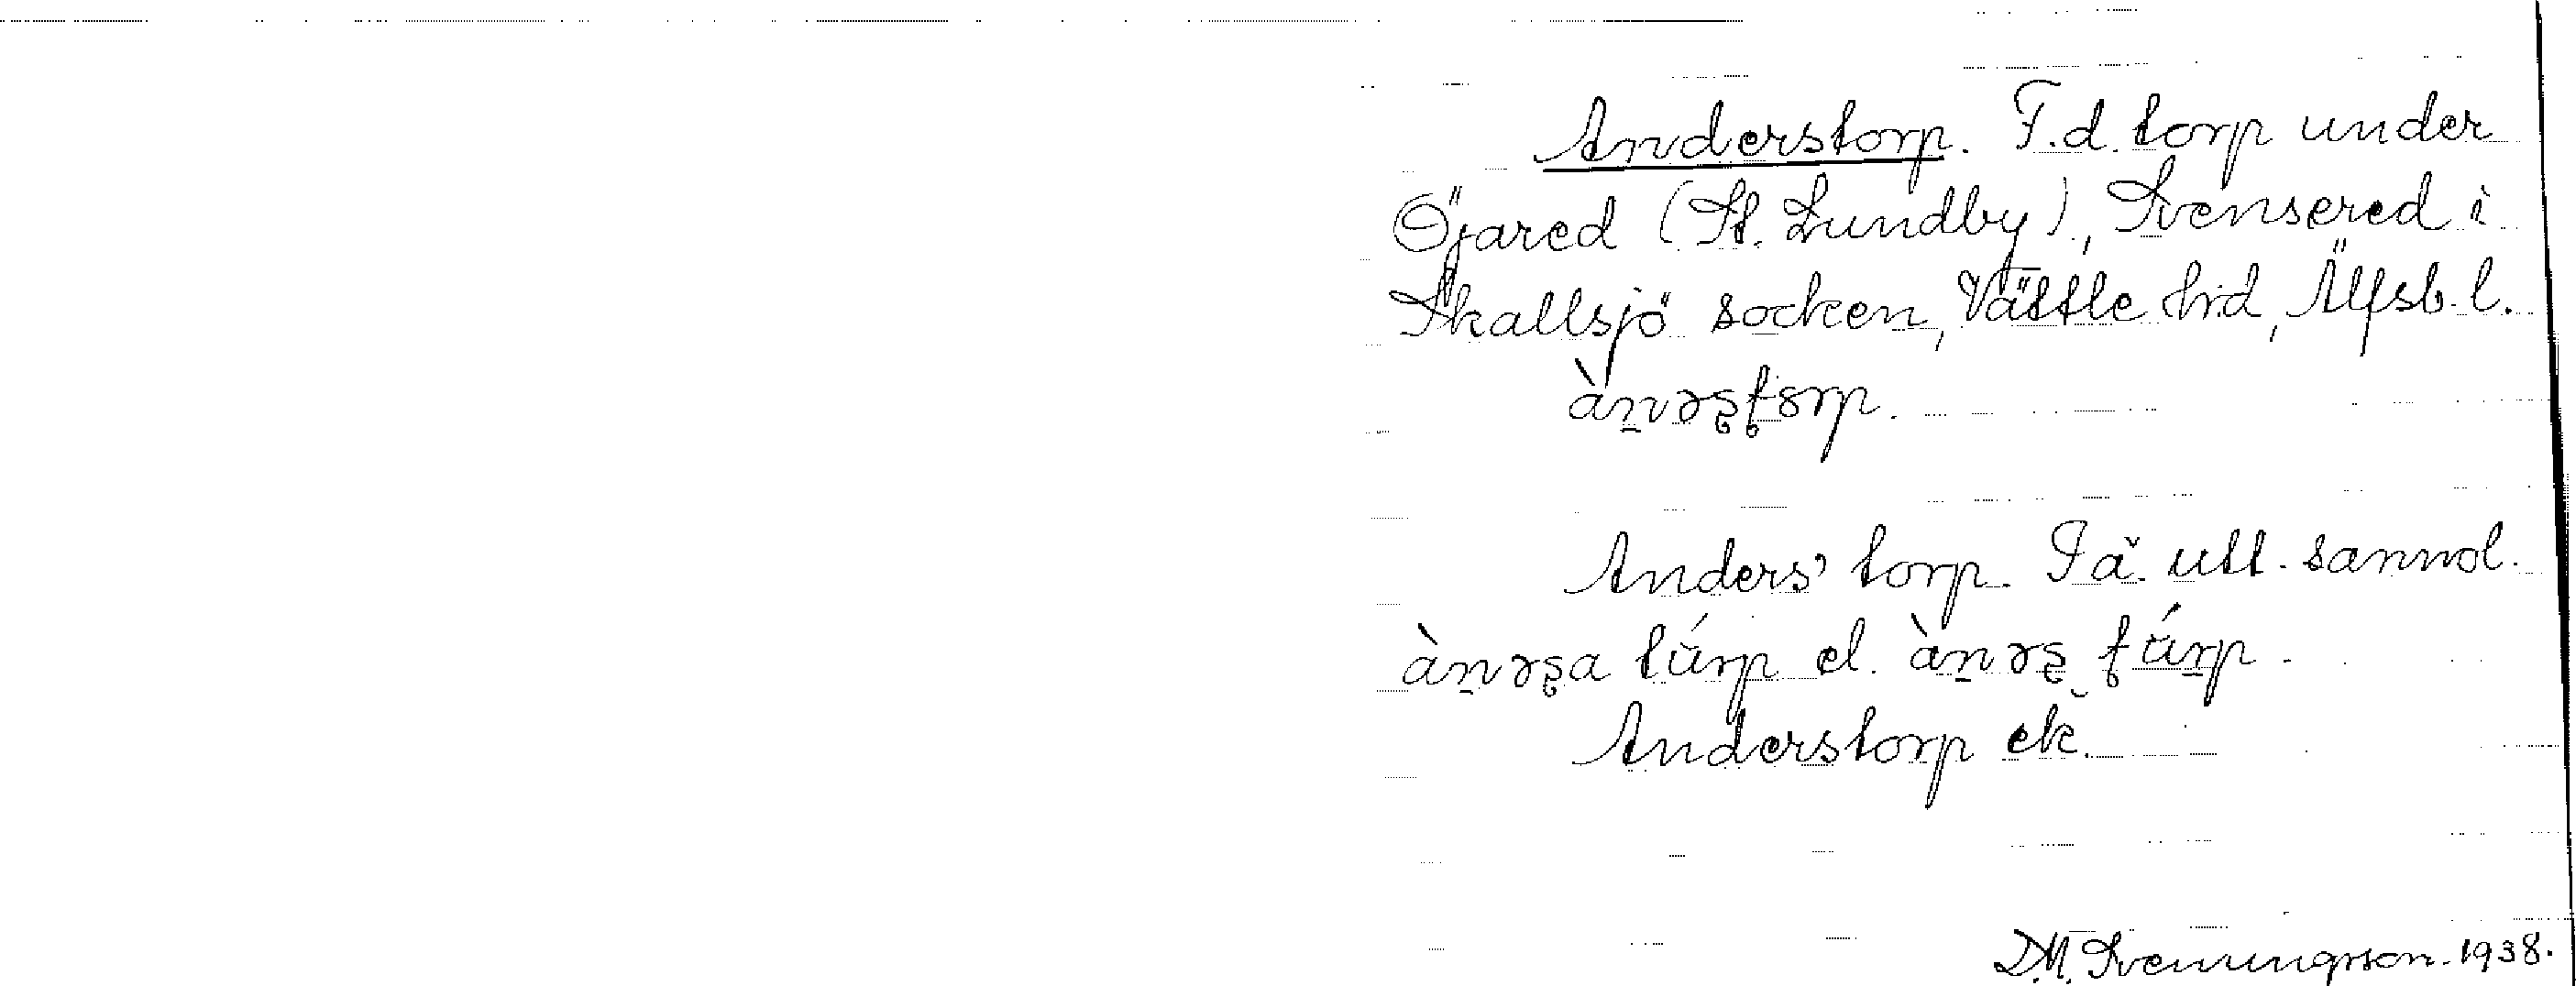 Anderstorp. F.d. torp under
Öjared (St. Lundby), Svensered i
Skallsjö socken, Vättle hd, Älfsb. l.
Anders' torp. utt. sannol.
el.
Anderstorp ek.
D.M. Svenningsson 1938.